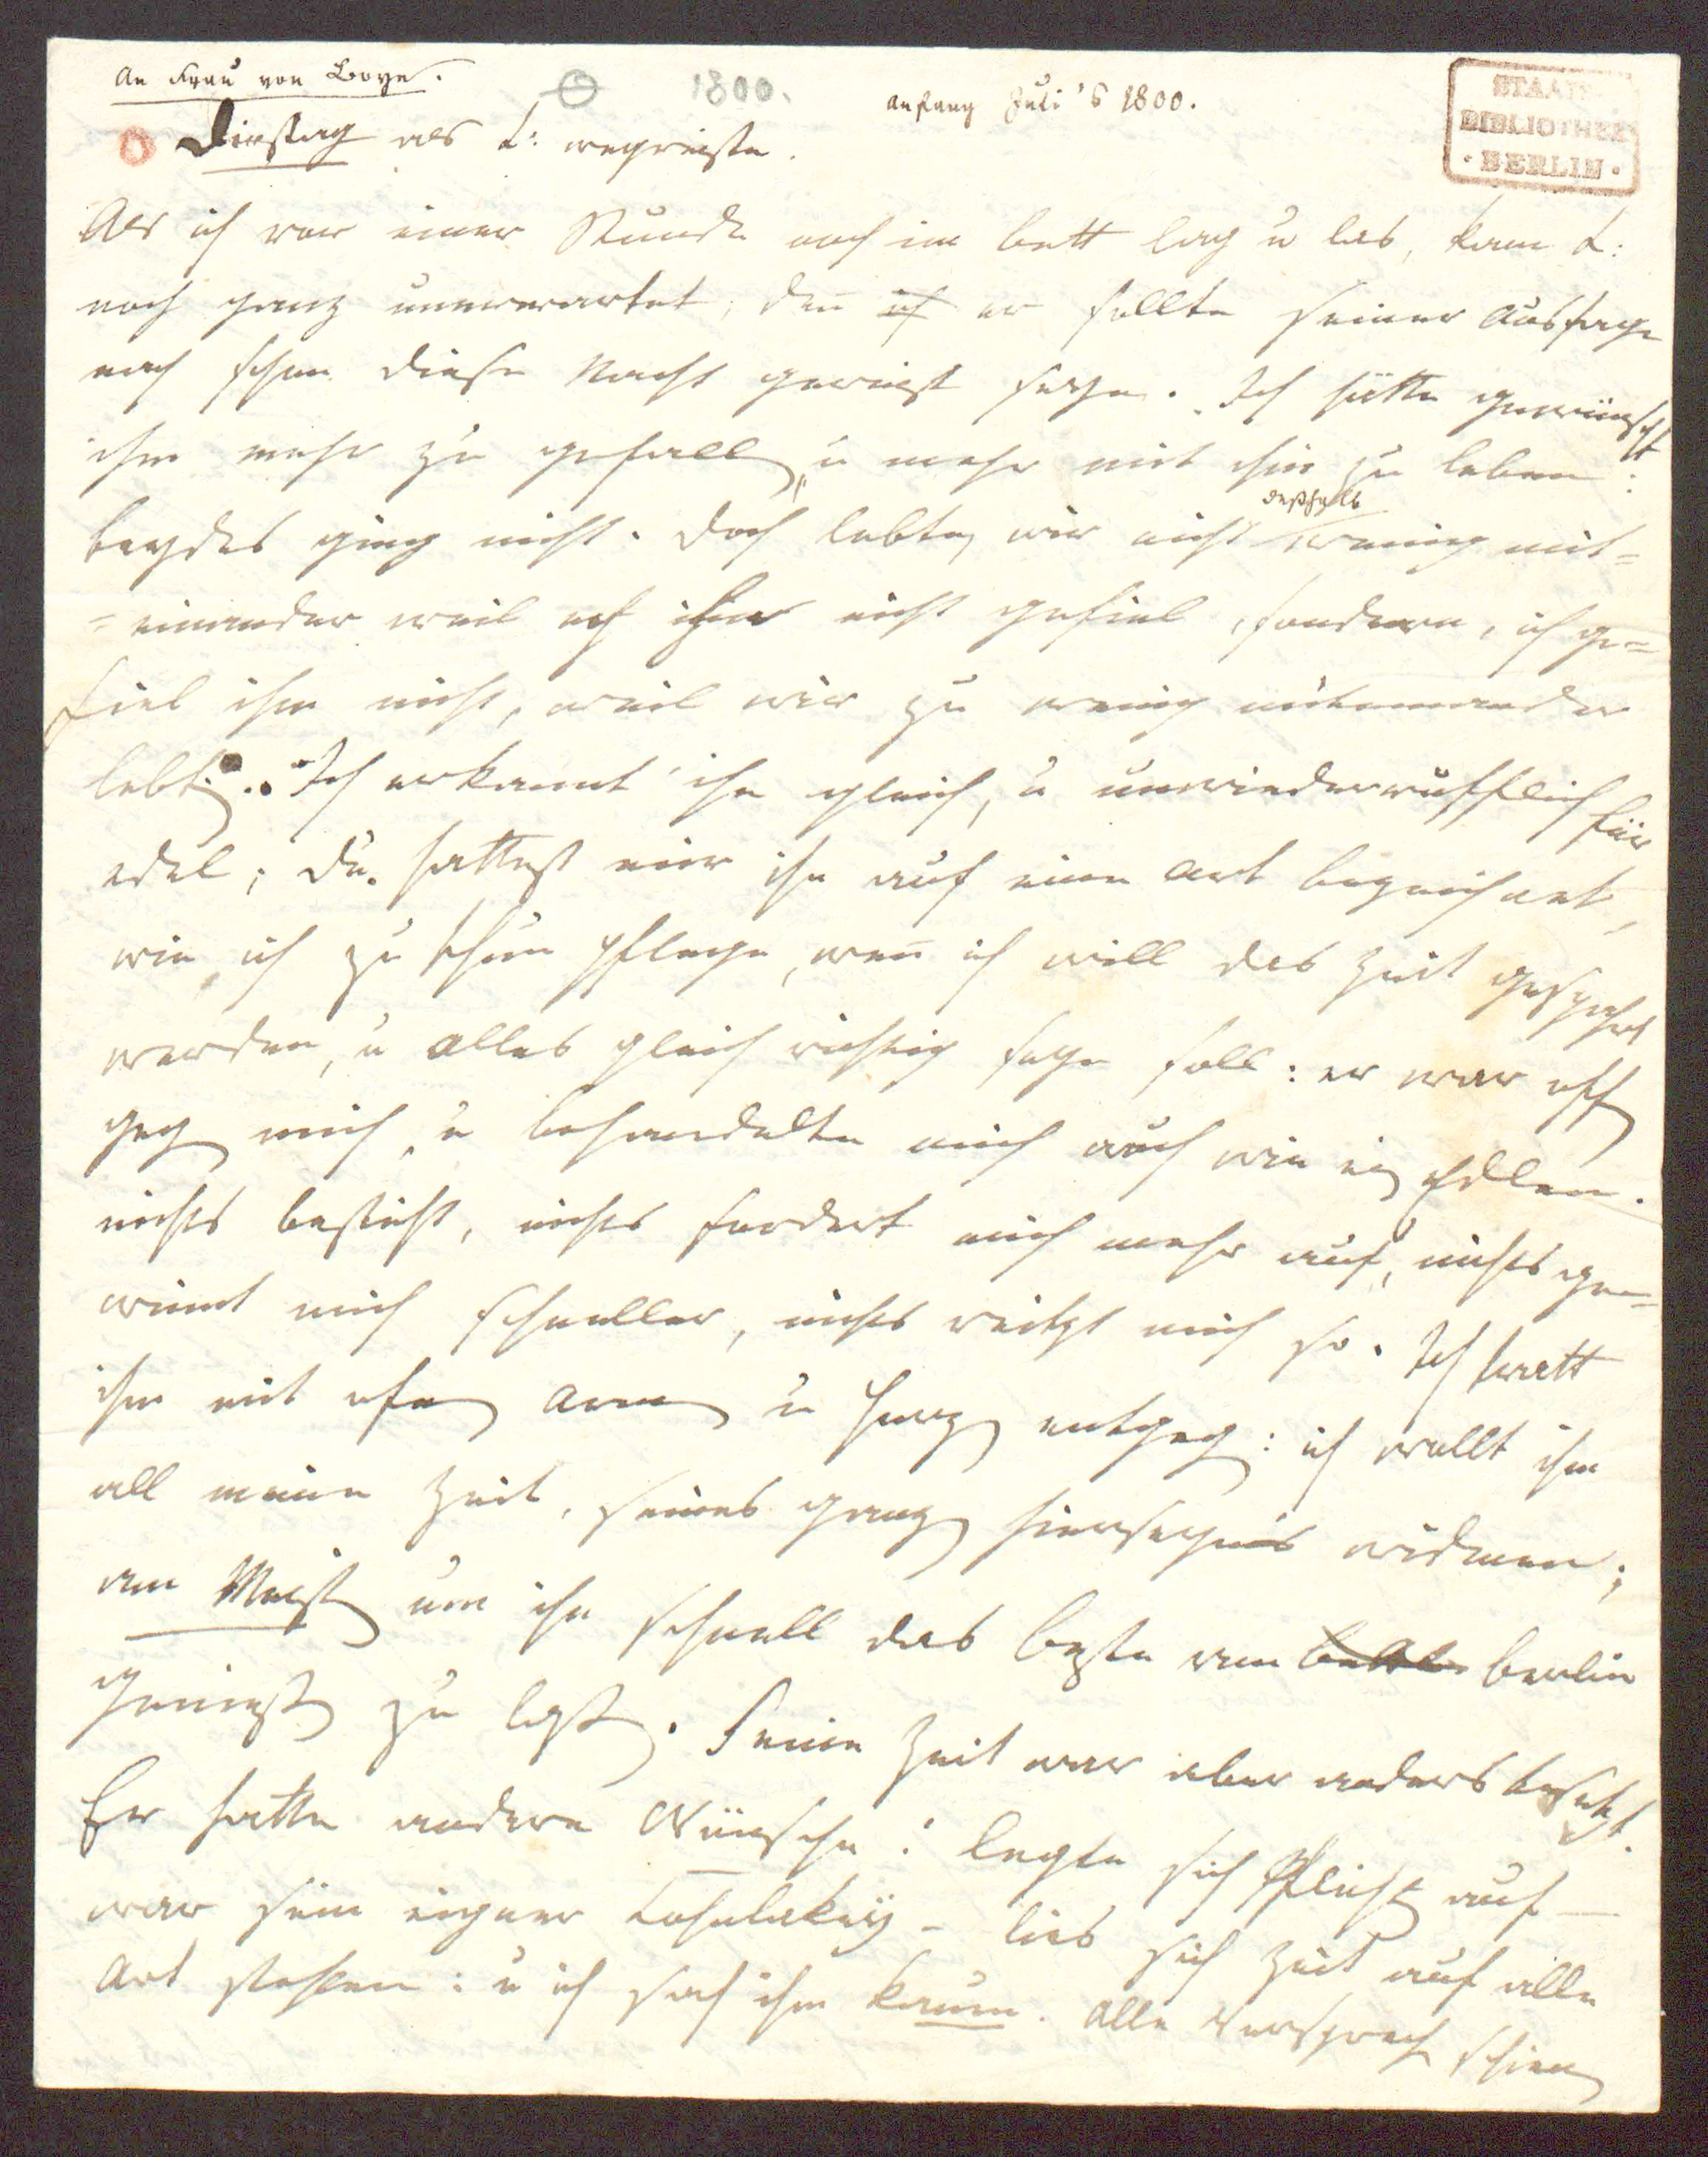 An Frau von Boye.
1800.
Anfang Juli's 1800.
STAATS
BIBLIOTHEK
· BERLIN ·
Dienstag als L: wegreiste.
Als ich vor einer Stunde noch im bett lag u las, kam L:
noch ganz unerwartet, den̄ ich er sollte seiner Aussage
nach schon diese Nacht gereist seyn. Ich hätte gewünscht
ihm mehr zu gefallen, u mehr mit ihm zu leben:
deßhalb
beydes ging nicht. doch lebten wir nicht wenig mit=
=einander weil ich ihm nicht gefiel, sondern, ich ge=
fiel ihm nicht, weil wir zu wenig miteinander
lebten. Ich erkannt' ihn gleich, u unwiederrufflich für
edel; du hattest mir ihn auf eine Art bezeichnet,
wie ich zu thun pflege, wen̄ ich will das Zeit gespahrt
werden, u alles gleich richtig seyn soll: er war offen
gegen mich, u behandelte mich auch wie einen Edlen.
nichts besticht, nichts fordert mich mehr auf, nichts ge=
winnt mich schneller, nichts reitzt mich so. Ich tratt
ihm mit ofnen Armen u Herzen entgegen: ich wollt ihm
all meine Zeit, seines ganzen hierseyns widmen;
am Meisten um ihn schnell das beste von Berlin
genießen zu lassen. Seine Zeit war aber anders besetzt.
Er hatte andere Wünsche: legte sich Pflichten auf –
war sein eigner Lohnlakey – lies sich Zeit auf alle
Art stehlen: u ich sah ihn kaum. Alle Versprechen schienen